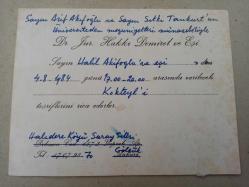 Sayın Arif Akifoğlu ve Sayın Sıtkı Tankurt'un
Üniversiteden mezuniyetleri münasebetiyle
Dr. Jur. Hakkı Demirel ve Eşi
Sayın Halil Akifoğlu'na eşi
4.8.1984 günü 17.00-20.00 arasında verilecek
Kokteyl'i
teşriflerini rica ederler.
Halıdere Köyü Saray Siteleri
Gölcük
Tel 70